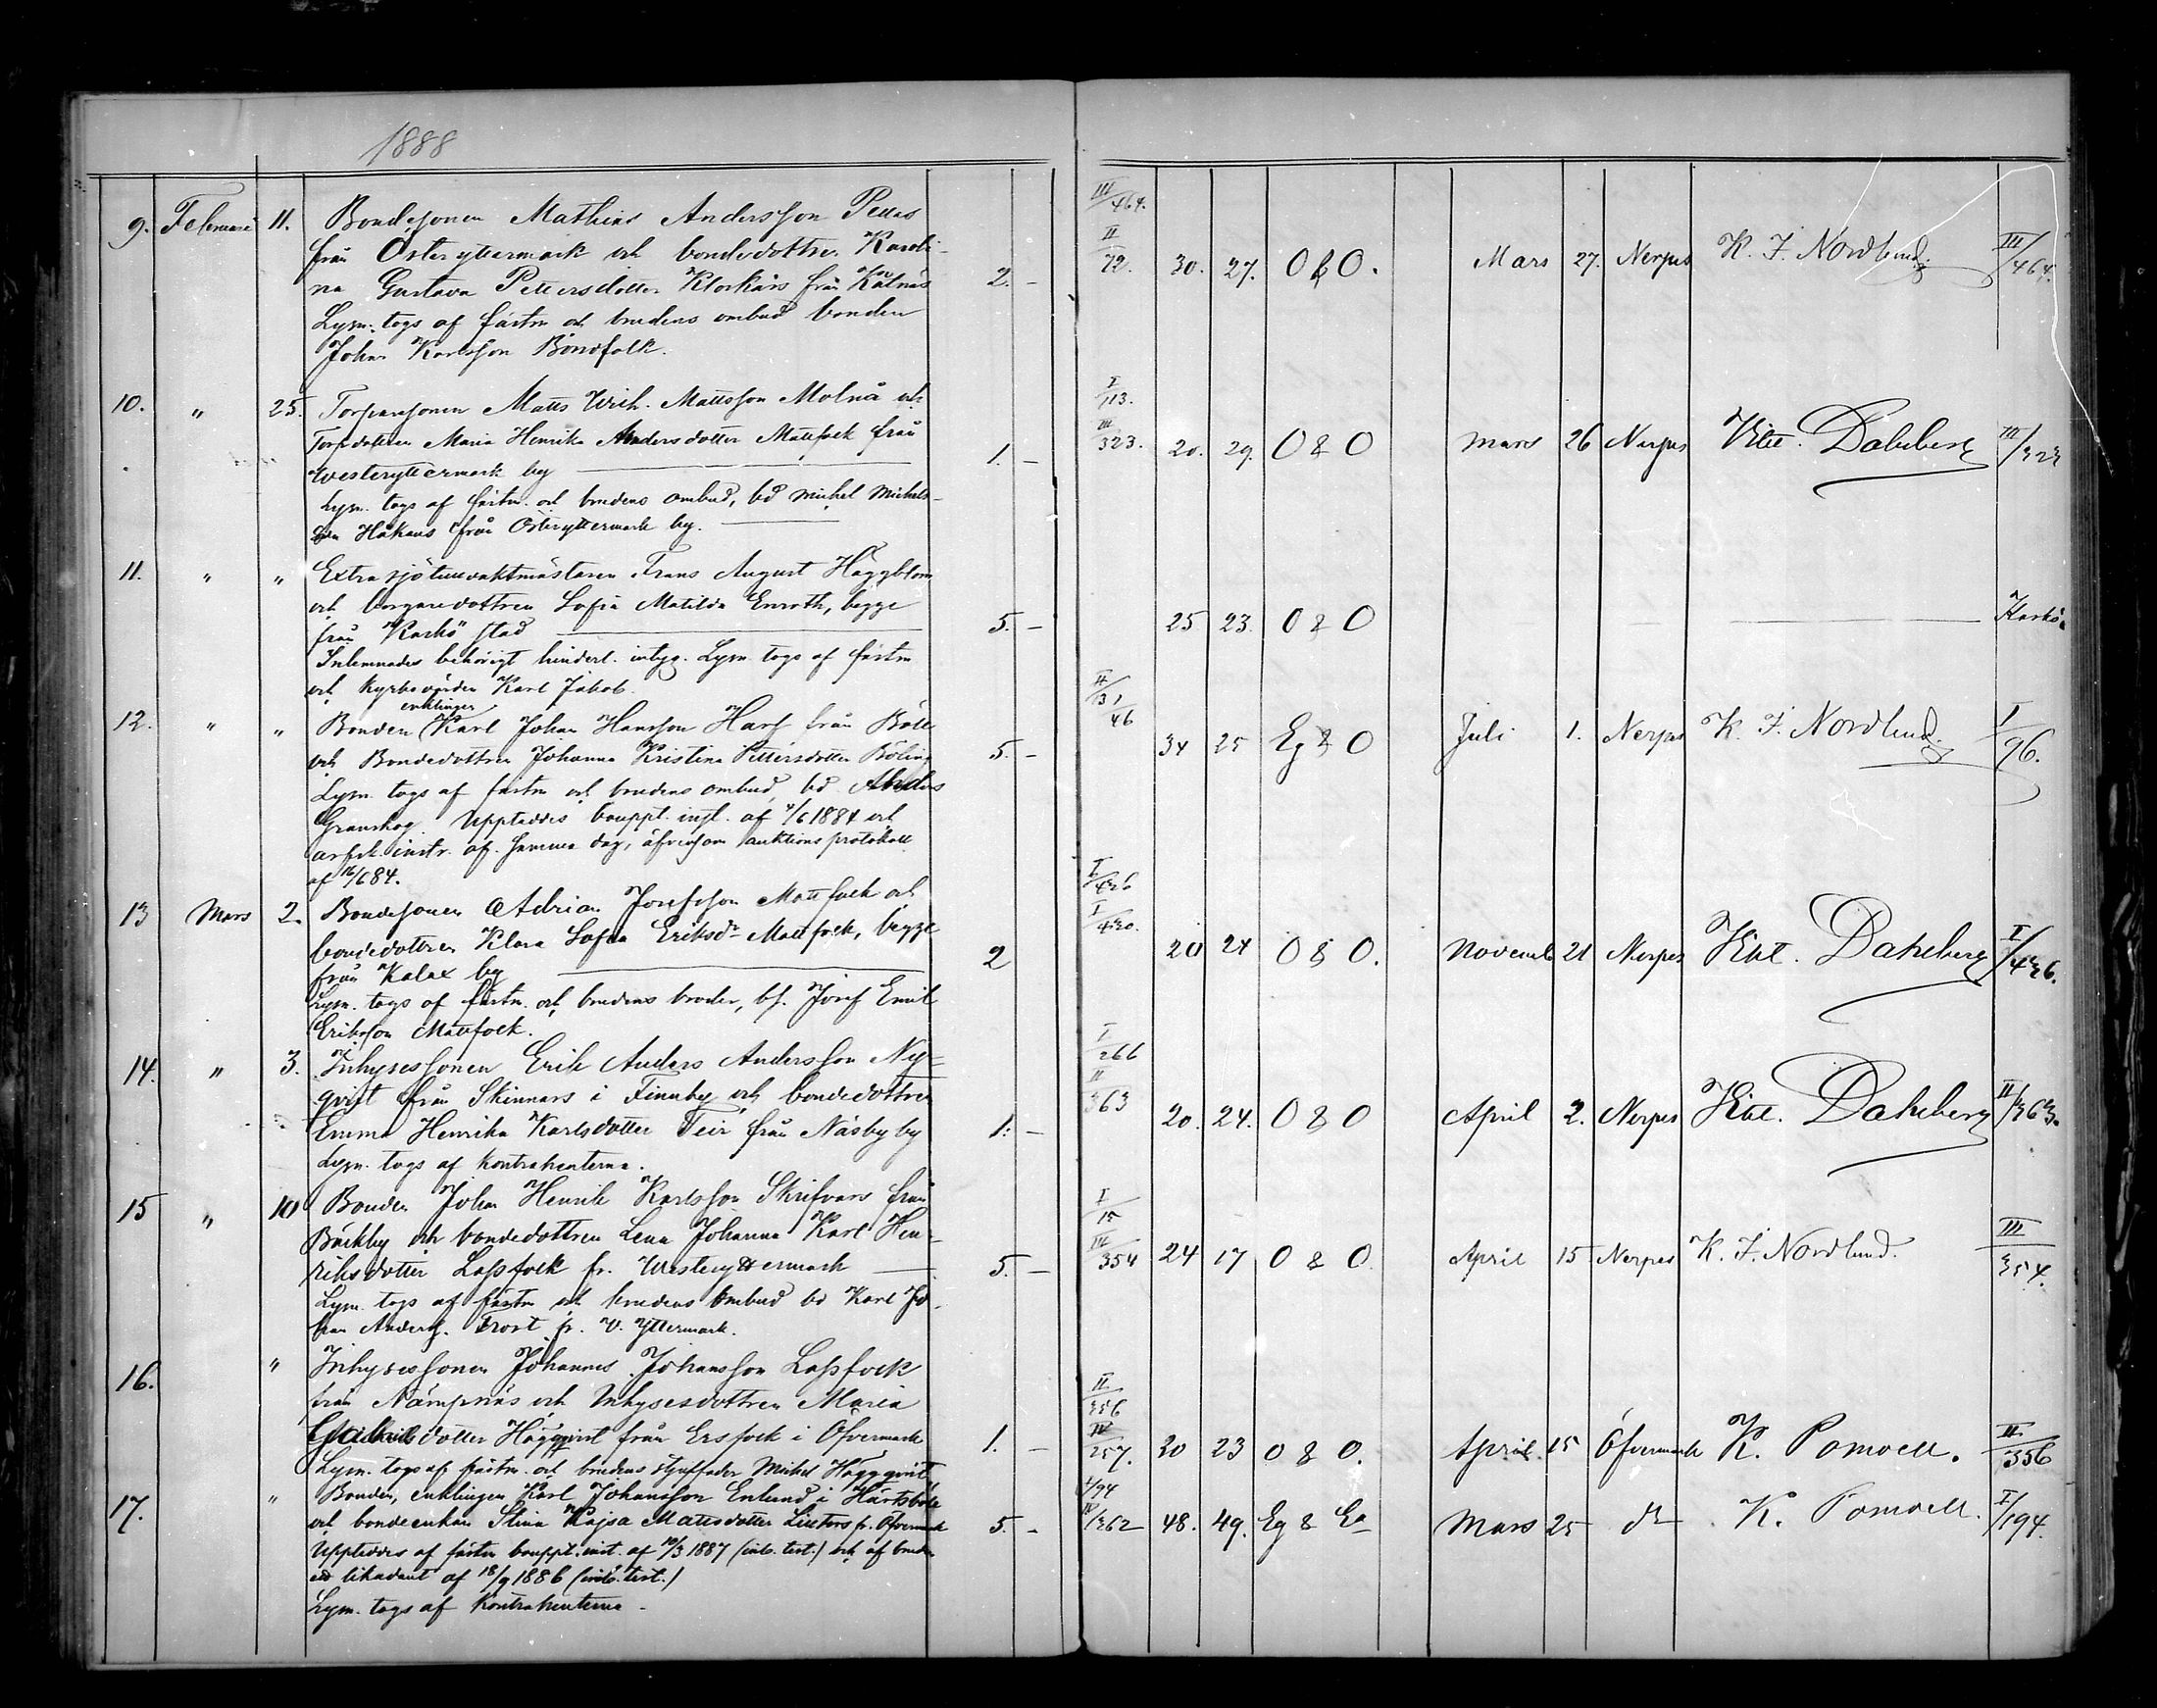 1888
9. Februari 11. Bondesonen Mathias Andersson Pellas
från Österyttermark och bondedottren Karoli-
na Gustava Pettersdotter Klockars från Kalnäs 2. –
Lysn. togs af fästm och brudens ombud bonden
Johan Karlsson Böndfolk.
III/464.
II/72. 30. 27. O & O. Mars 27. Nerpes K. F. Nordlund. III/464.
10. " 25. Torparesonen Matts Wilh. Mattsson Molnå och
Torpdottren Maria Henrika Andersdotter Mattfolk från
Westeryttermark by 1. –
Lysn. togs af fästm. och brudens ombud, bd Michel Michels-
son Håkans från Österyttermark by.
I/113.
III/323. 20. 29. O & O Mars 26 Nerpes Vilh. Dahlberg III/323
11. " " Extra sjötullvaktmästaren Frans August Häggblom
och borgaredottren Sofia Matilda Enroth, begge
från Kaskö stad 5. –
Inlemnades behörigt hinderl. intyg. Lysn togs af fästm
och kyrkovärden Karl Jakob.
25 23. O & O Kaskö.
12. " " Bonden enklingen Karl Johan Hansson Harf från Böle
och Bondedottren Johanna Kristina Pettersdotter Böling 5. –
Lysn. togs af fästm och brudens ombud, bd Anders
Granskog. Uppteddes bouppt. instr. af 4/6 1884 och
arfsk. instr. af samma dag, äfvensom auktionsprotokoll
af 16/6 84.
II/131
/46 34 25 Eg & O Juli 1. Nerpes K. F. Nordlund. I/96.
13 Mars 2. Bondesonen Adrian Josefsson Mattfolk och
bondedottren Klara Sofia Eriksdr Mattfolk, begge
från Kalax by 2
Lysn. togs af fästm. och brudens broder, bs. Josef Emil
Eriksson Mattfolk.
I/436
I/430. 20 24 O & O. Novemb 21 Nerpes Vilh. Dahlberg I/436.
14. " 3. Inhysessonen Erik Anders Andersson Ny-
qvist från Skinnars i Finnby och bondedottren
Emma Henrika Karlsdotter Teir från Näsby by 1: –
Lysn. togs af kontrahenterna.
I/266
II/363 20. 24. O & O April 2. Nerpes Vilh. Dahlberg II/363.
15 " 10 Bonden Johan Henrik Karlsson Skrifvars från
Bäckby och bondedottren Lena Johanna Karl Hen-
riksdotter Lassfolk fr. Westeryttermark 5. –
Lysn. togs af fästm och brudens ombud bd Karl Jo-
han Anderss. Frost fr. V. Yttermark.
I/15
III/354 24 17 O & O. April 15 Nerpes K. F. Nordlund. III/354.
16. " Inhysessonen Johannes Johansson Lassfolk
från Nämpnäs och Inhysesdottren Maria
dotter Häggqvist från Ersfolk i Öfvermark 1. –
Lysn. togs af fästm. och brudens styffader Michel Häggqvist
II/356
IV/257. 20 23 O & O. April 15 Öfvermark K. Pomoell. II/356
17. " Bonden, enklingen Karl Johansson Enlund i Hårtsböle
och bondeenkan Stina Kajsa Mattsdotter Lillfors fr. Öfvermark 5. –
Uppteddes af fästm bouppt. inst. af 10/3 1887 (inb. test.) och af bruden
likadant af 18/9 1886 (inb. test.)
Lysn. togs af kontrahenterna.
I/194
IV/362 48. 49. Eg & Ea Mars 25 do K. Pomoell. I/194.